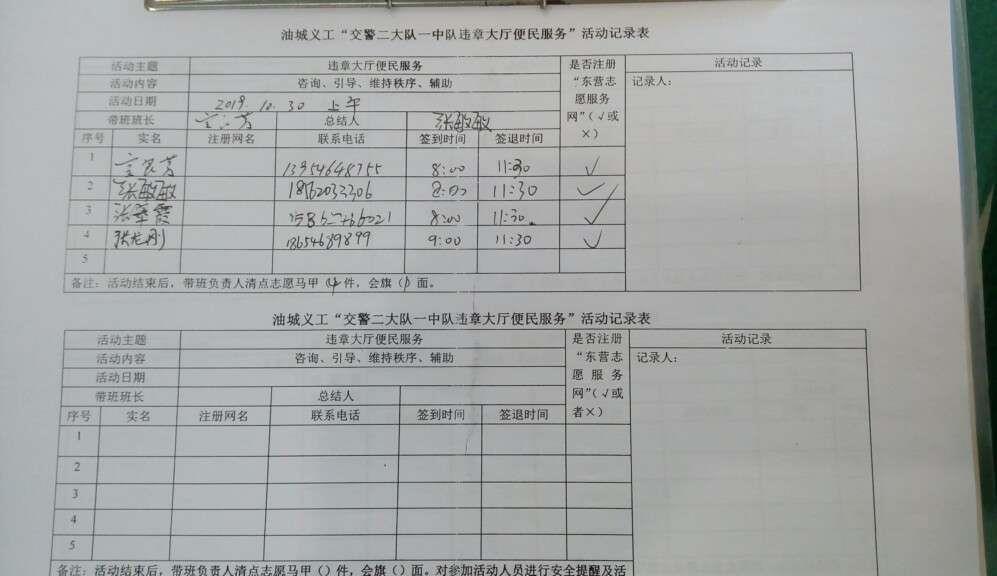 油城义工“交警二大队一中队违章大厅便民服务”活动记录表
活动主题 违章大厅便民服务 是否注册“东营志愿服务网”(√或×) 活动记录
活动内容 咨询、引导、维持秩序、辅助 记录人:
活动日期 2019.10.30 上午
带班班长 总结人 张敏敏
序号 实名 注册网名 联系电话 签到时间 签退时间
1 13954648755 8:00 11:30 √
2 张敏敏 18562033306 8:00 11:30 √
3 张翠霞 8:00 11:30 √
4 张龙刚 18654689899 9:00 11:30 √
5
备注:活动结束后,带班负责人清点志愿马甲(4)件,会旗(1)面。
油城义工“交警二大队一中队违章大厅便民服务”活动记录表
活动主题 违章大厅便民服务 是否注册“东营志愿服务网”(√或者×) 活动记录
活动内容 咨询、引导、维持秩序、辅助 记录人:
活动日期
带班班长 总结人
序号 实名 注册网名 联系电话 签到时间 签退时间
1
2
3
4
5
备注:活动结束后,带班负责人清点志愿马甲()件,会旗()面。对参加活动人员进行安全提醒及活